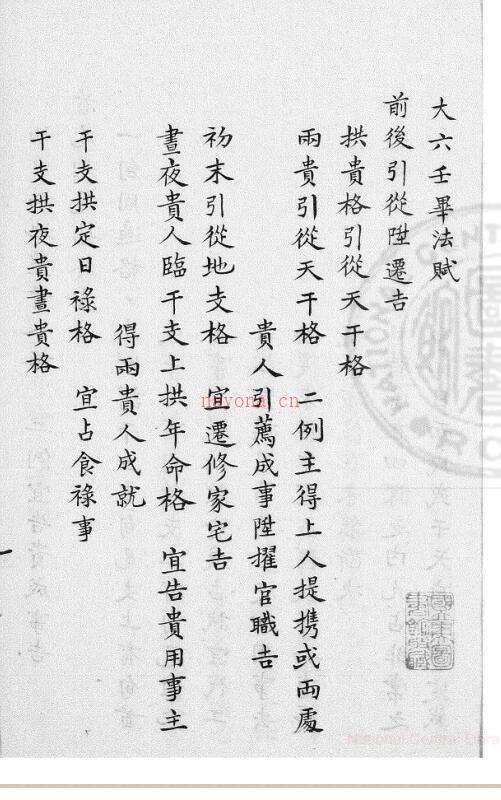 大六壬畢法賦
前後引從陞遷吉
拱貴格引從天干格
兩貴引從天干格 二例主得上人提携或兩處
貴人引薦成事陞擢官職吉
初末引從地支格 宜遷修家宅吉
晝夜貴人臨干支上拱年命格 宜告貴用事主
得兩貴人成就
干支拱定日祿格 宜占食祿事
干支拱夜貴晝貴格
一
nayona.cn
National Central Libra